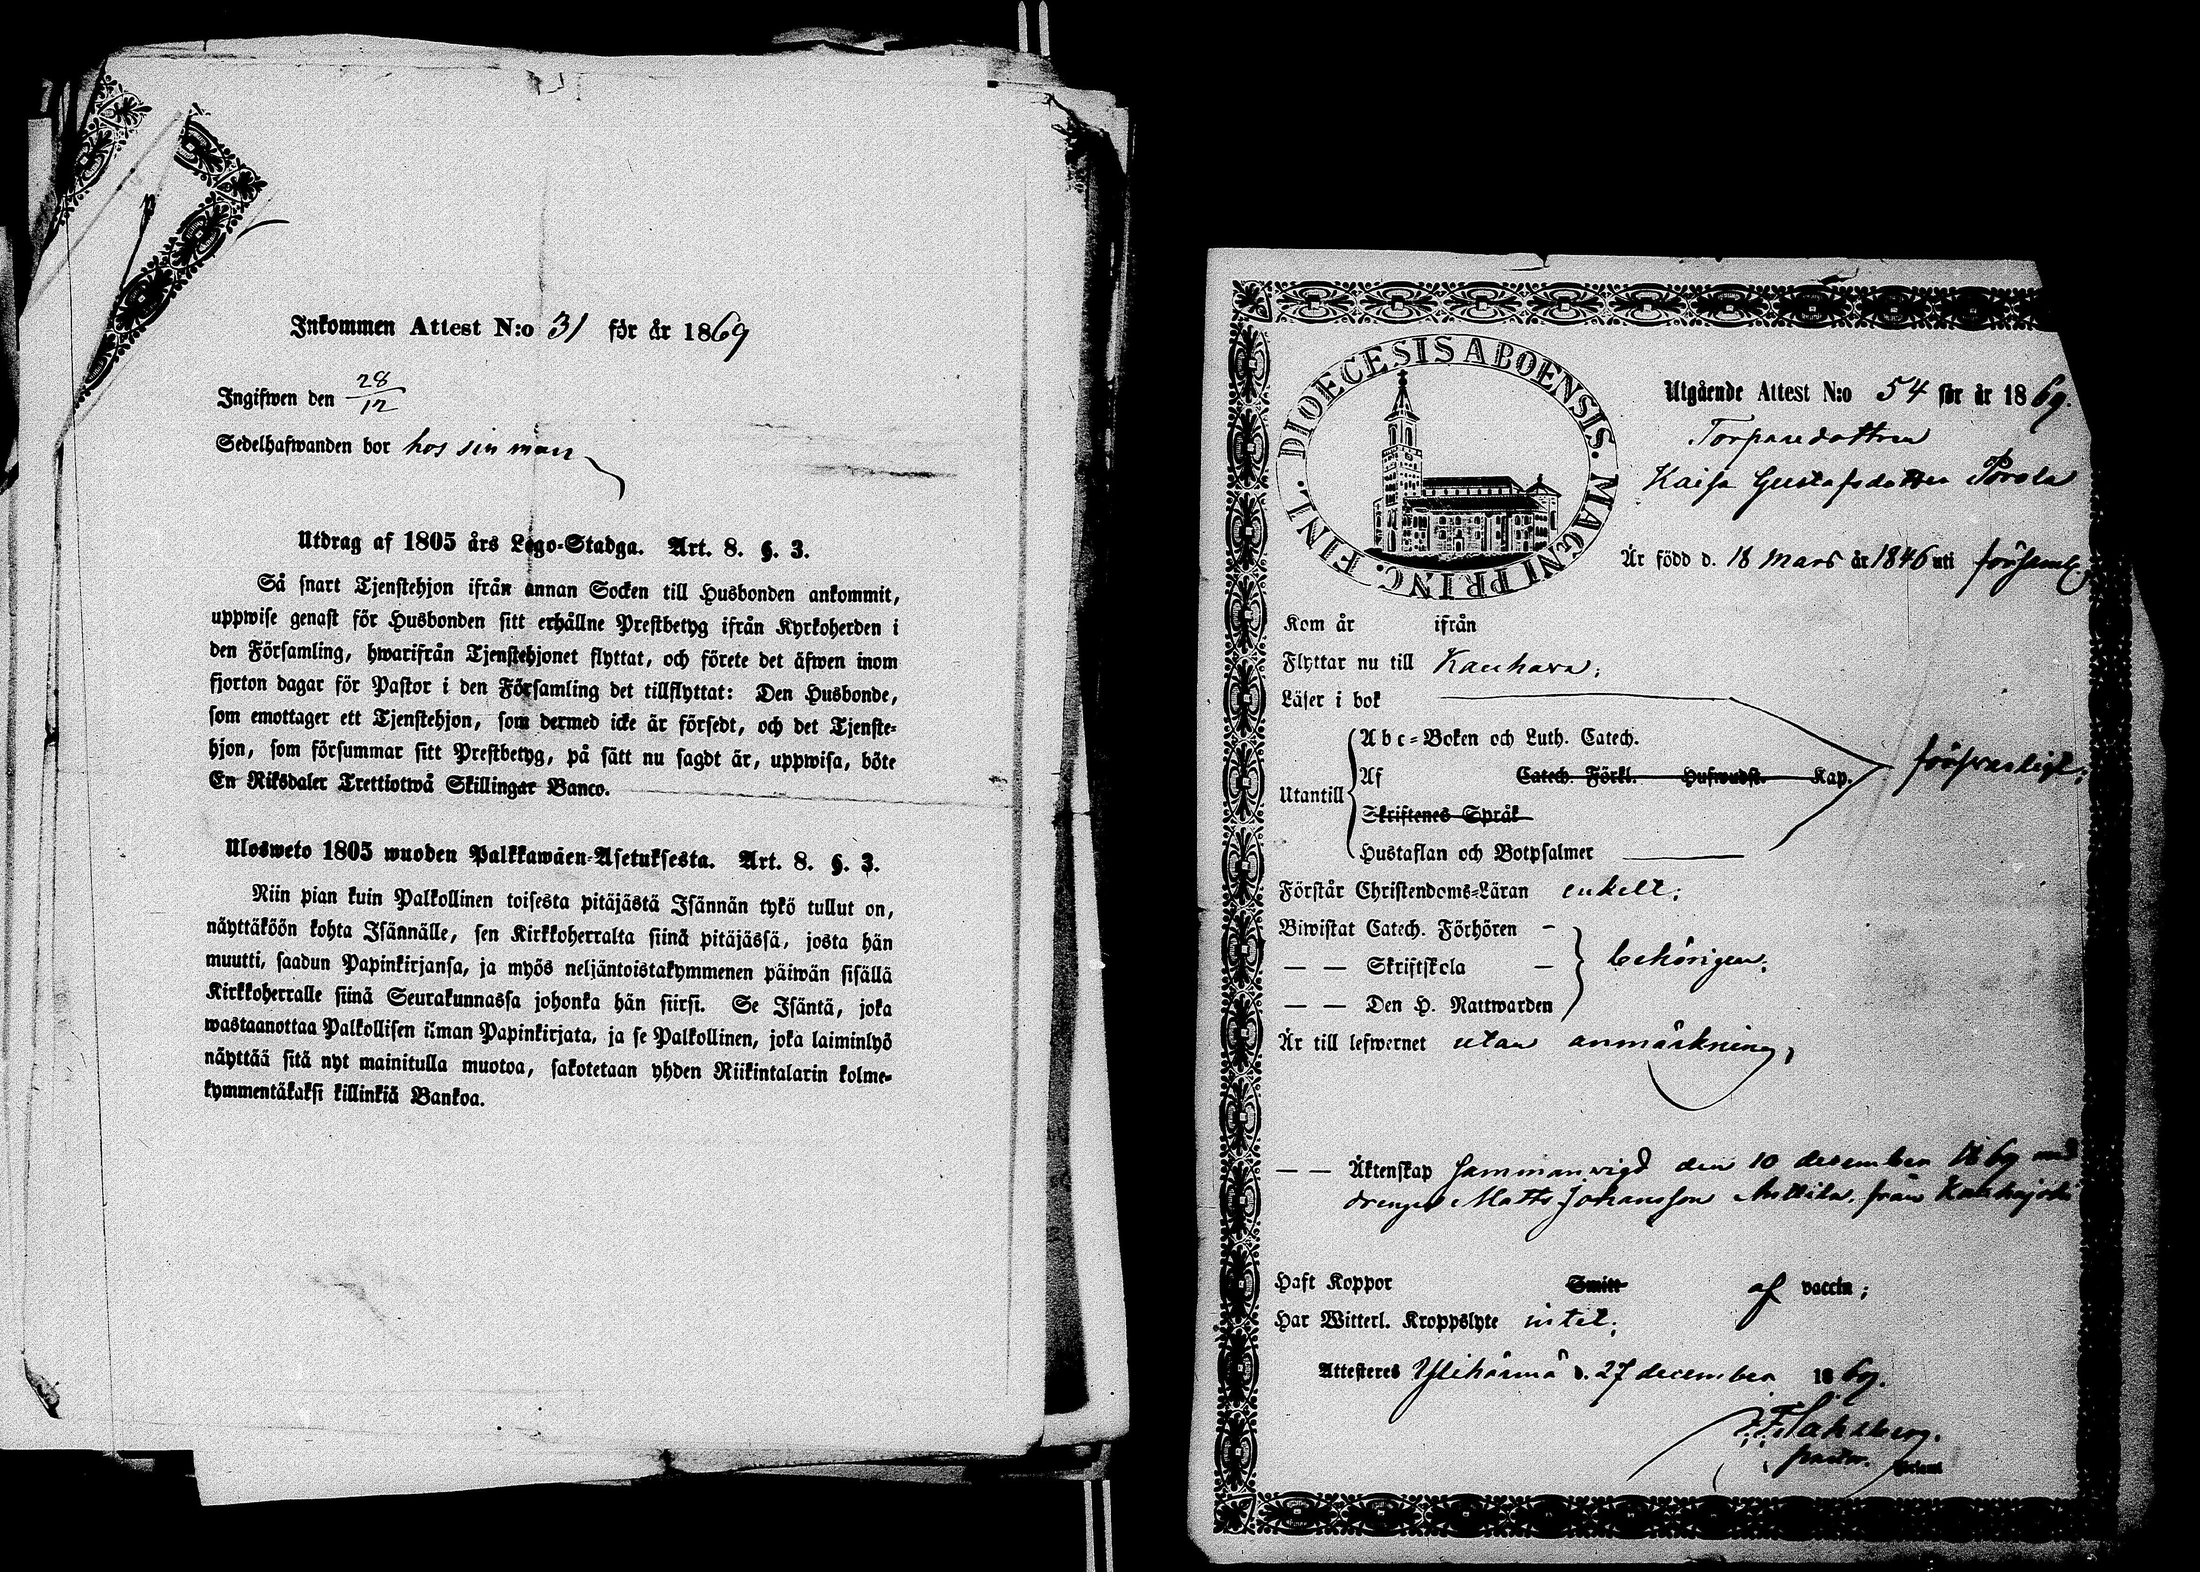 Inkommen Attest N:o 31 för år 1869
Ingifwen den 28/12
Sedelhafwanden bor hos sin man
Utdrag af 1805 års Lego-Stadga. Art. 8. §. 3.
Så snart Tjenstehjon ifrån annan Socken till Husbonden ankommit,
uppwise genast för Husbonden sitt erhållne Prestbetyg ifrån Kyrkoherden i
den Församling, hwarifrån Tjenstehjonet flyttat, och förete det äfwen inom
fjorton dagar för Pastor i den Församling det tillflyttat: Den Husbonde,
som emottager ett Tjenstehjon, som dermed icke är försedt, och det Tjenste-
hjon, som försummar sitt Prestbetyg, på sätt nu sagdt är, uppwisa, böte
En Riksdaler Trettiotwå Skillingar Banco.
Ulosweto 1805 wuoden Palkkawäen-Asetuksesta. Art. 8. §. 3.
Niin pian kuin Palkollinen toisesta pitäjästä Isännän tykö tullut on,
näyttäköön kohta Isännälle, sen Kirkkoherralta siinä pitäjässä, josta hän
muutti, saadun Papinkirjansa, ja myös neljäntoistakymmenen päiwän sisällä
Kirkkoherralle siinä Seurakunnassa johonka hän siirsi. Se Isäntä, joka
wastaanottaa Palkollisen ilman Papinkirjata, ja se Palkollinen, joka laiminlyö
näyttää sitä nyt mainitulla muotoa, sakotetaan yhden Riikintalarin kolme-
kymmentäkaksi killinkiä Bankoa.
DIOECESIS ABOENSIS. MAGNI PRINC. FINL.
Utgående Attest N:o 54 för år 1869.
Torparedottren
Kaisa Gustafsdotter Porola
Är född d. 18 Mars år 1846 uti församl;
Kom år ifrån
Flyttar nu till Kauhava;
Läser i bok
Abc-Boken och Luth. Catech.
Utantill Af Catech. Förkl. Hufwudst. Kap. försvarligt;
Skriftenes Språk
Hustaflan och Botpsalmer
Förstår Christendoms-Läran enkelt;
Biwistat Catech. Förhören –
— — Skriftskola – behörigen;
— — Den H. Nattwarden
Är till lefwernet utan anmärkning,
— — Äktenskap sammanvigd den 10 december 1869 med
drengen Matts Johansson Anttila, från Kauhajoki
Haft Koppor Smitt af vaccin;
Har Witterl. Kroppslyte intet;
Attesteres Ylihärmä d. 27 december 1869.
pastor.